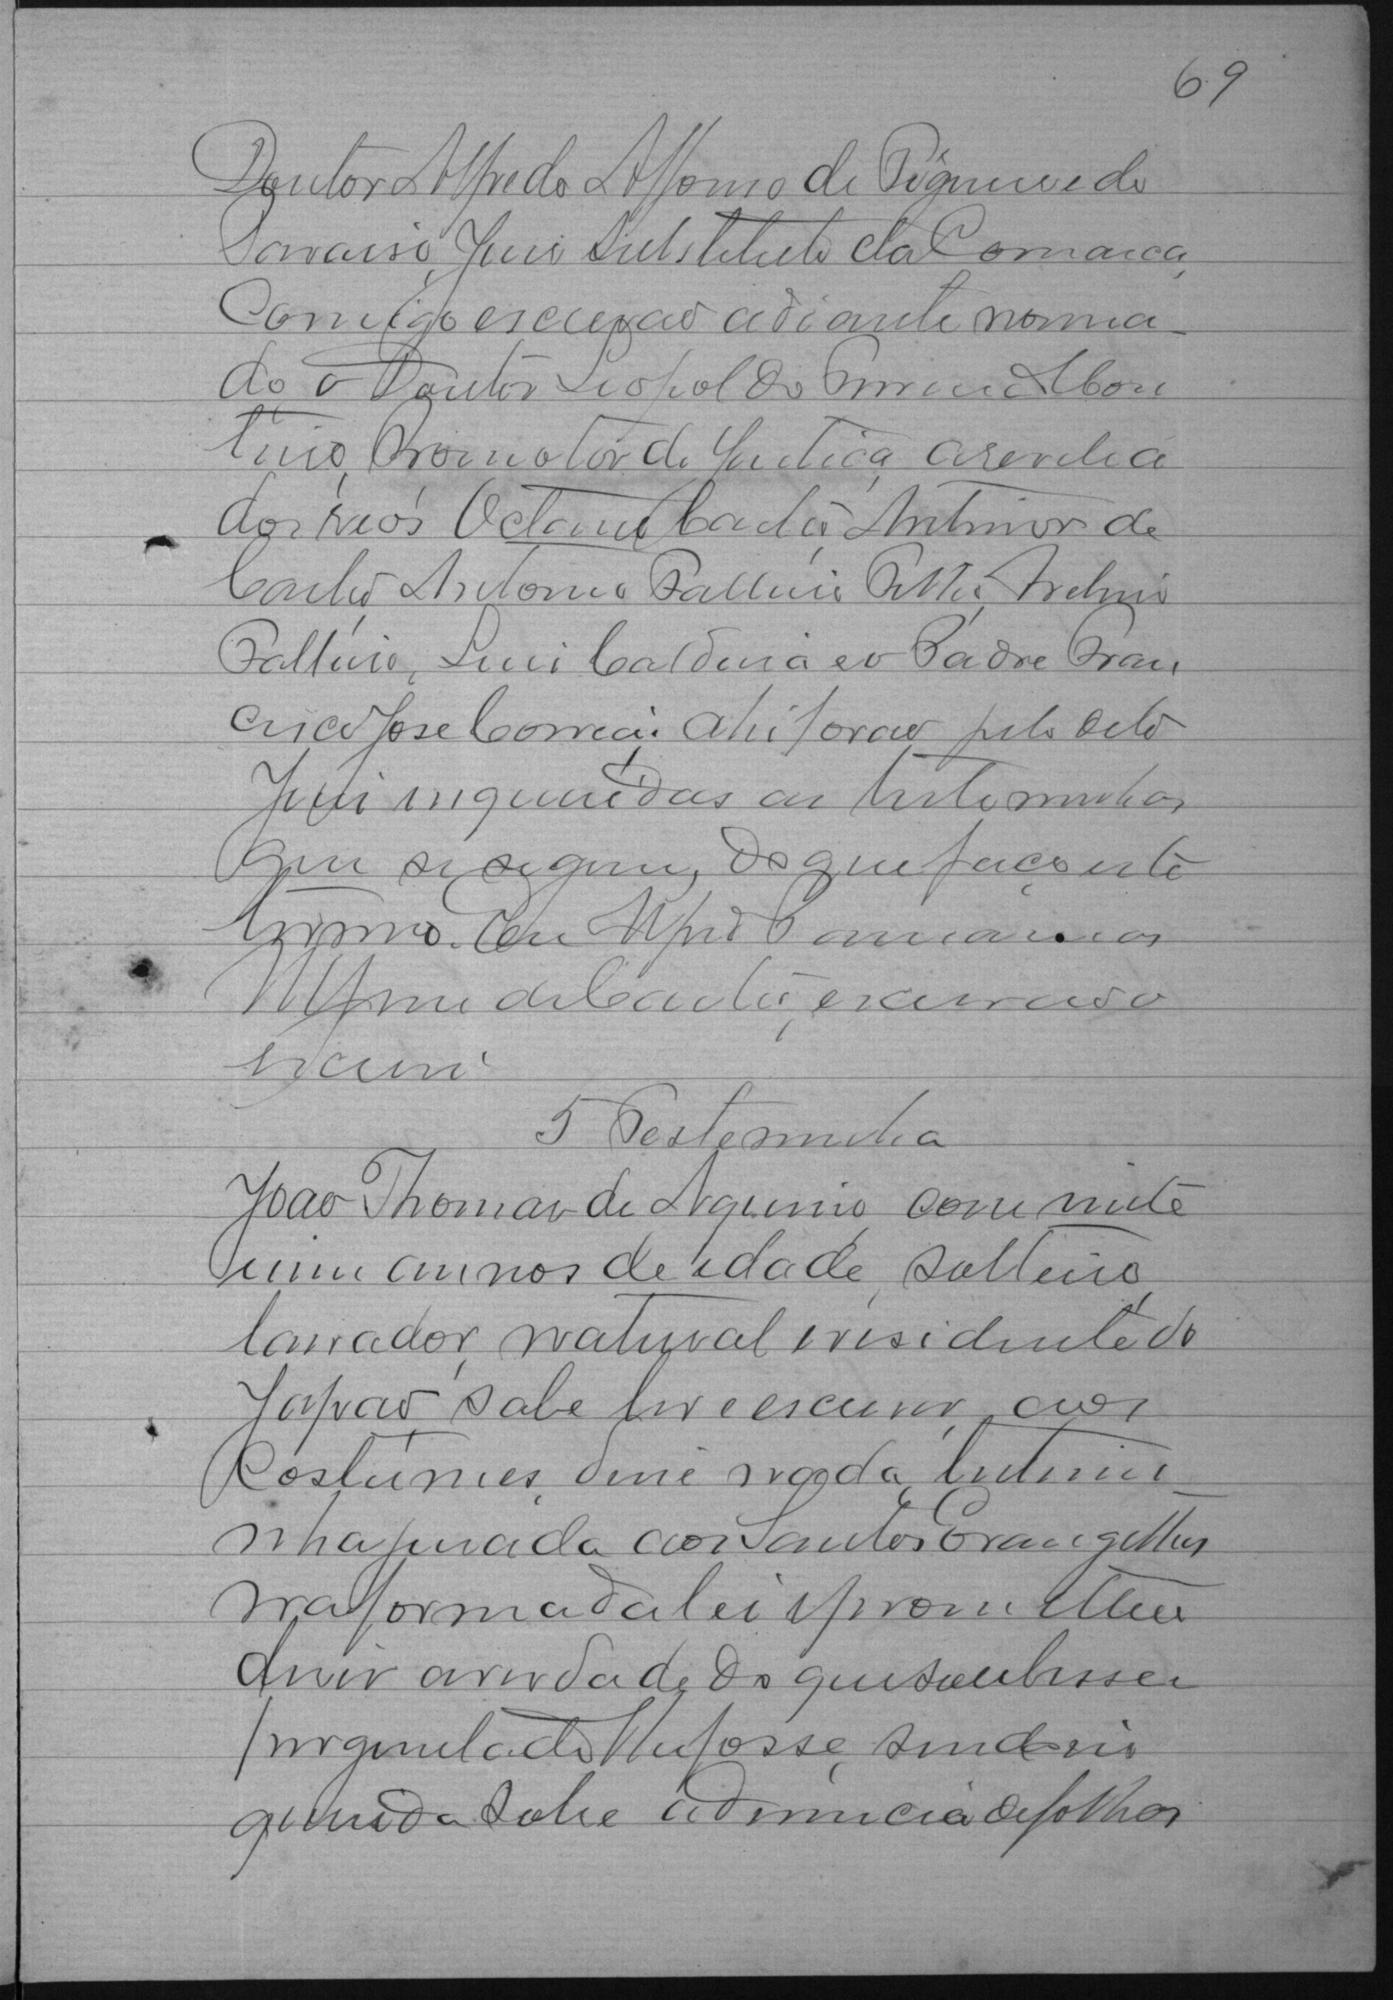 69
Doutor Alfredo Affonso de Figueredo
Saraiso, Juis Substituto da Comarca,
Comigo escrivão adiante nomia-
do o Doutor Leopoldo
Promotor de Justica, arevelia
dos reós Octavio Castro, Antinor de
Castro Antonio Falleiro Filho,
Falleiro, Luis Caldeira e o Padre Fran
cisco Jose Correia: ahi forão pelo dito
Juis inqueridas as testemunhas
que se segem, do que faço este
termo. Eu
de Castro, escrivão o
escrevi
5 Testemunha
João Thomas de Aquino, com vinte
um annos de idade, solteiro,
lavrador, natural e residente do
Japão, sabe ler e escrever, aos
Costumes, disse nada, testimu-
nha jurada aos Santos Evangelhos
na forma da lei e prometteu
diser averdade do que soubesse e
perguntado lhe fosse, sendo in
querida sobre a denuncia de folhas